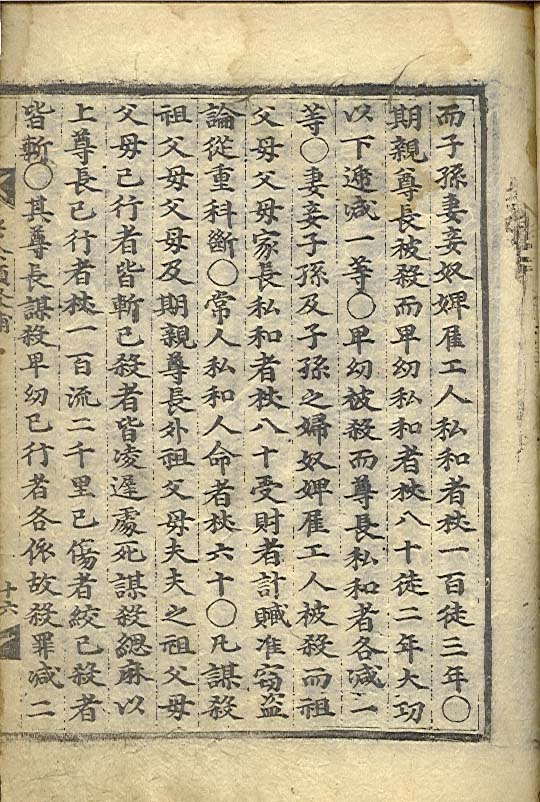 而子孫妻妾奴婢雇工人私和者杖一百徒三年〇
期親尊長被殺而卑幼私和者杖八十徒二年大功
以下逓減一等〇卑幼被殺而尊長私和者各減一
等〇妻妾子孫及子孫之婦奴婢雇工人被殺而祖
父母父母家長私和者杖八十受財者計贓准窃盗
論從重科斷〇常人私和人命者杖六十〇凡謀殺
祖父母父母及期親尊長外祖父母夫夫之祖父母
父母已行者皆斬已殺者皆凌遲處死謀殺緦麻以
上尊長已行者杖一百流二千里已傷者絞已殺者
皆斬〇其尊長謀殺卑幼已行者各依故殺罪減二
十六